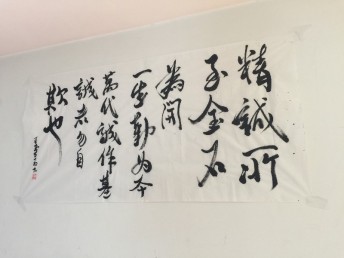 精誠所
至金石
為開
一生勤为本
萬代誠作基
誠者勿自
欺也